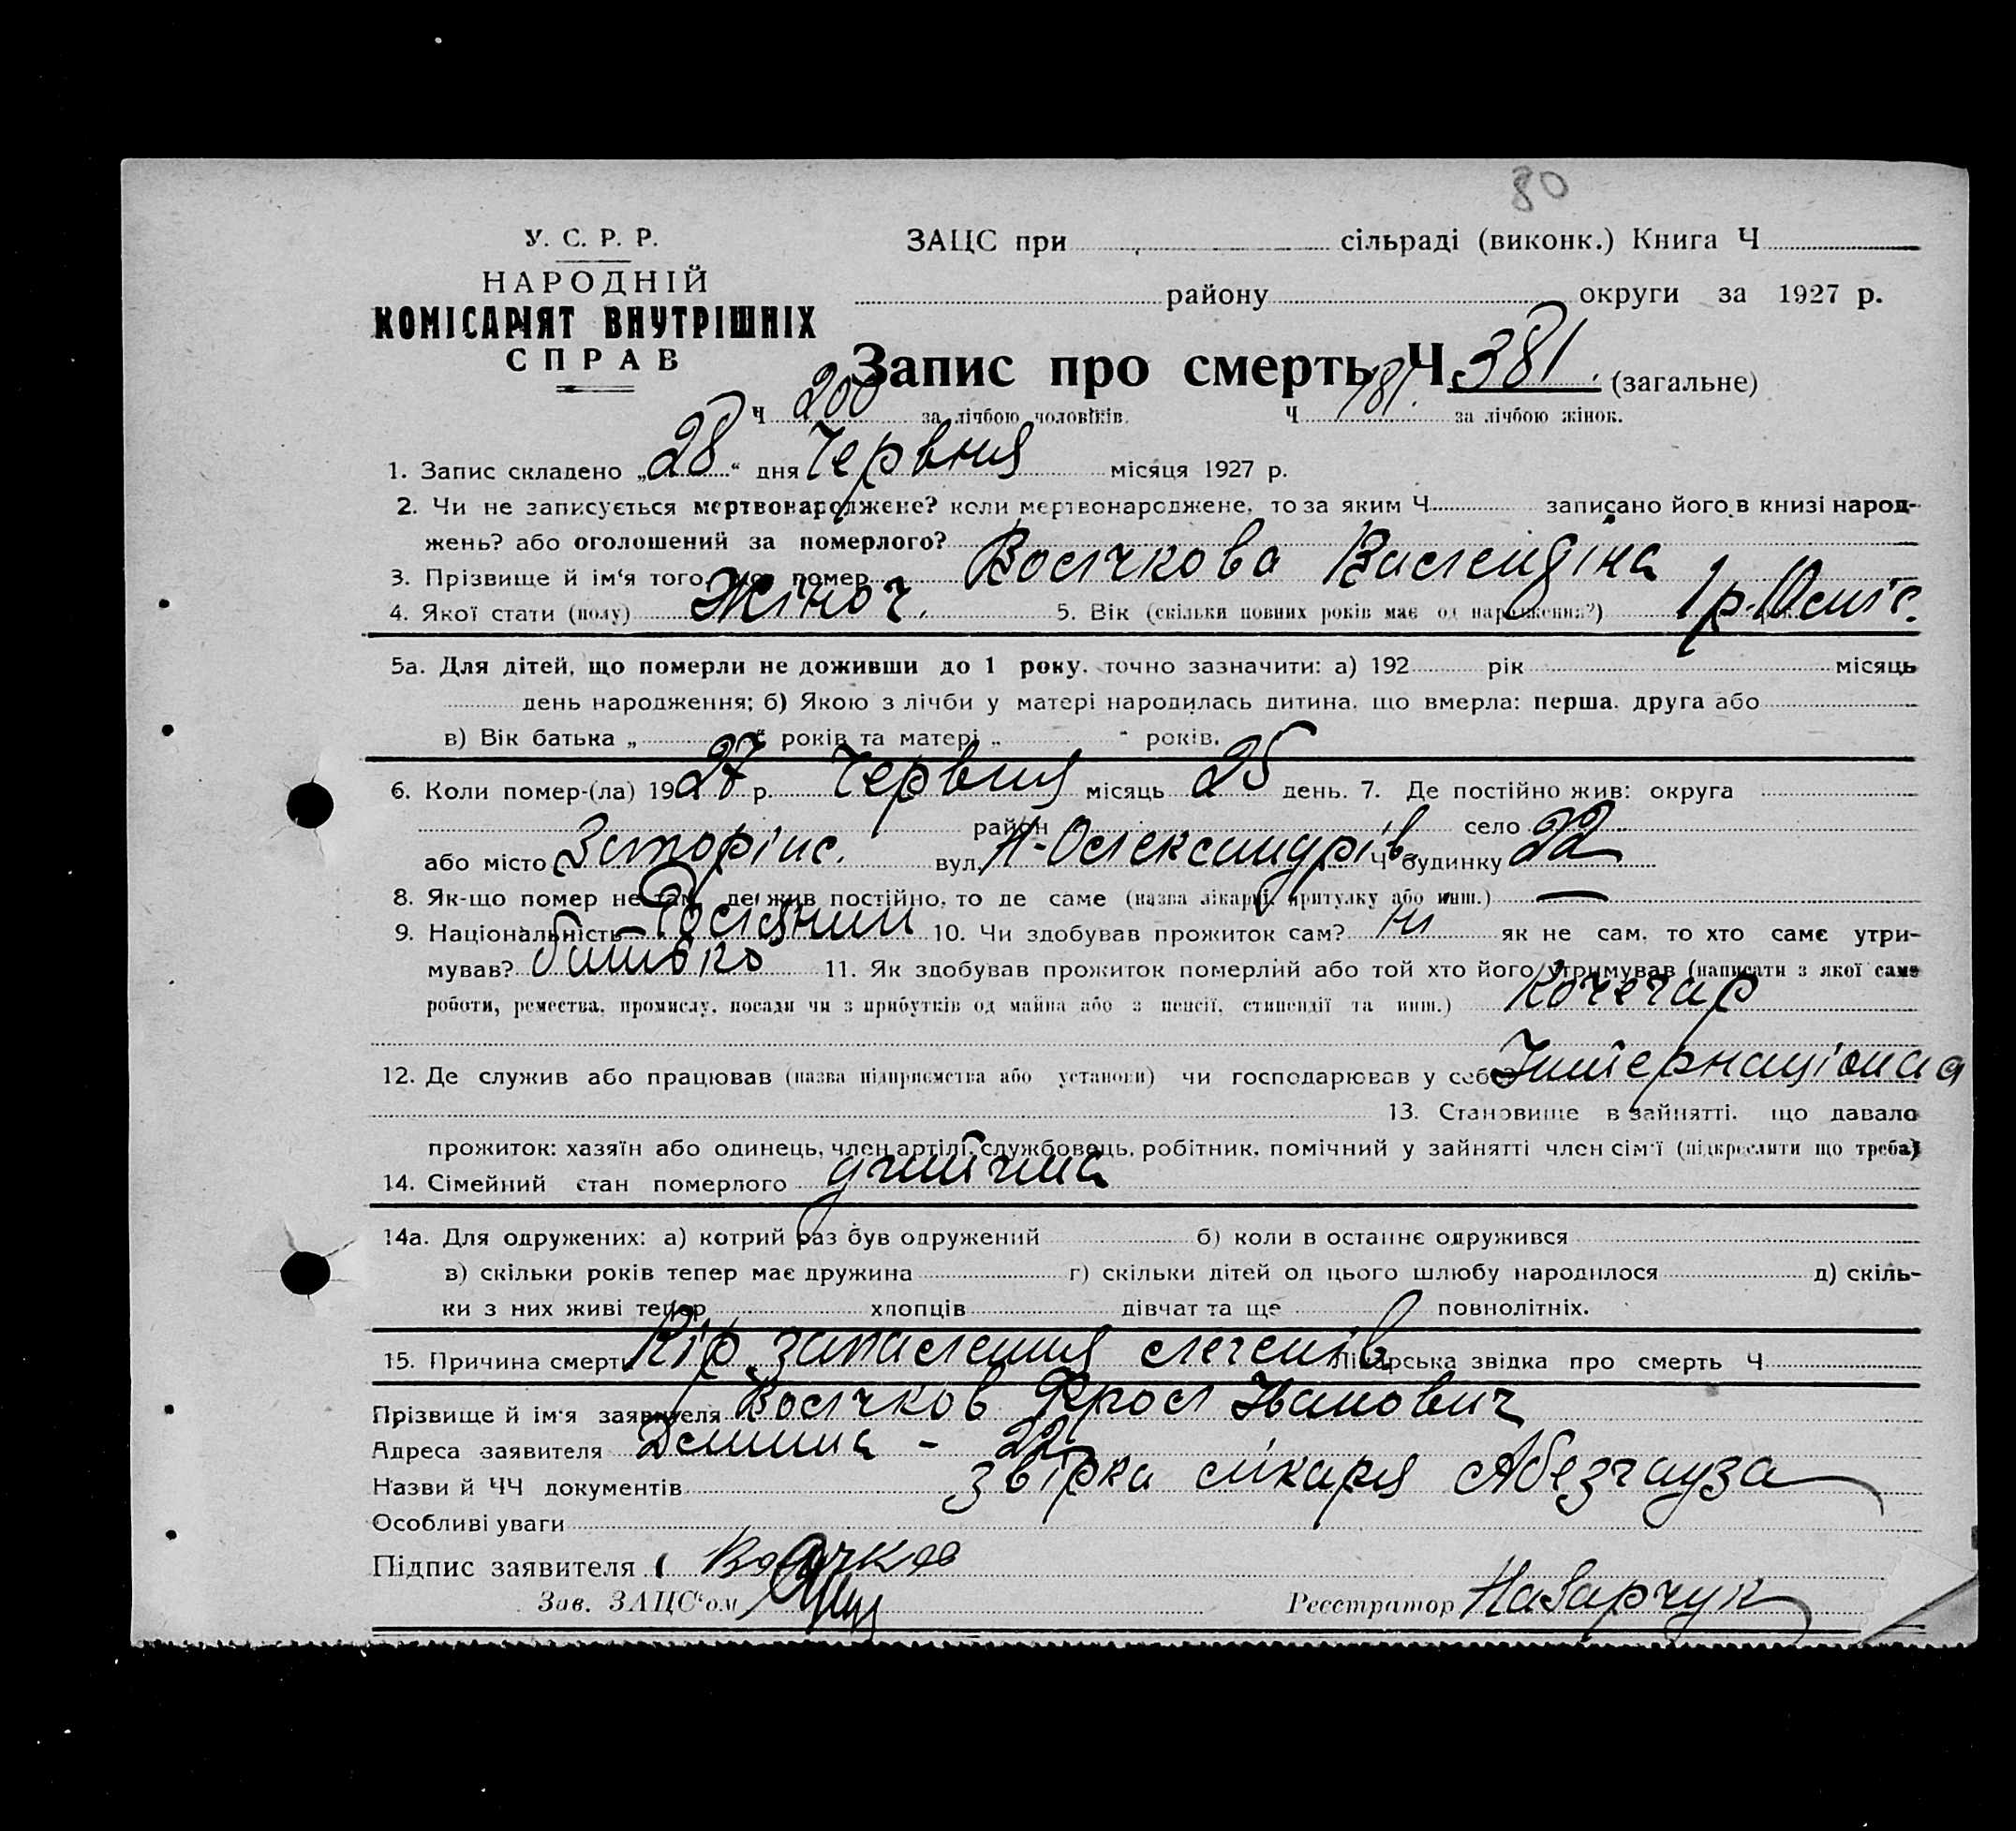 80
У. С. Р. Р.
НАРОДНІЙ
КОМІСАРІЯТ ВНУТРІШНІХ
СПРАВ
ЗАЦС при сільраді (виконк.) Книга Ч
району округи за 1927 р.
Запис про смерть Ч 381. (загальне)
Ч 200 за лічбою чоловіків. Ч 181. за лічбою жінок.
1. Запис складено „28“ дня Червня місяця 1927 р.
2. Чи не записується мертвонароджене? коли мертвонароджене, то за яким Ч записано його в книзі народ-
жень? або оголошений за померлого?
3. Прізвище й ім'я того, що помер Волчкова Валендіна
4. Якої стати (полу) Жіноч. 5. Вік (скільки повних років має од народження?) 1 р. 10 міс.
5а. Для дітей, що померли не доживши до 1 року, точно зазначити: а) 192 рік місяць
день народження; б) Якою з лічби у матері народилась дитина, що вмерла: перша, друга або
в) Вік батька „ “ років та матері „ “ років.
6. Коли помер-(ла) 1927 р. Червня місяць 25 день. 7. Де постійно жив: округа
район село
або місто Запоріж. вул. Н-Олександрів Ч будинку 22
8. Як-що помер не там, де жив постійно, то де саме (назва лікарні, притулку або инш.) —
9. Національність Росіянин 10. Чи здобував прожиток сам? ні як не сам, то хто саме утри-
мував? батько 11. Як здобував прожиток померлий або той хто його утримував (написати з якої саме
роботи, ремества, промислу, посади чи з прибутків од майна або з пенсії, стипендії та инш.) Кочегар
12. Де служив або працював (назва підприємства або установи) чи господарював у себе? Інтернаціонал
13. Становище в зайнятті, що давало
прожиток: хазяїн або одинець, член артілі, службовець, робітник, помічний у зайнятті член сім'ї (підкреслити що треба)
14. Сімейний стан померлого
14а. Для одружених: а) котрий раз був одружений б) коли в останнє одружився
в) скільки років тепер має дружина г) скільки дітей од цього шлюбу народилося д) скіль-
ки з них живі тепер хлопців дівчат та ще повнолітніх.
15. Причина смерти Кір, запалення легенів Лікарська звідка про смерть Ч
Прізвище й ім'я заявителя Волчков Фрол Иванович
Адреса заявителя 22
Назви й ЧЧ документів звідка лікаря Абезгауза
Особливі уваги
Підпис заявителя Волчков
Зав. ЗАЦС'ом Реєстратор Назарчук